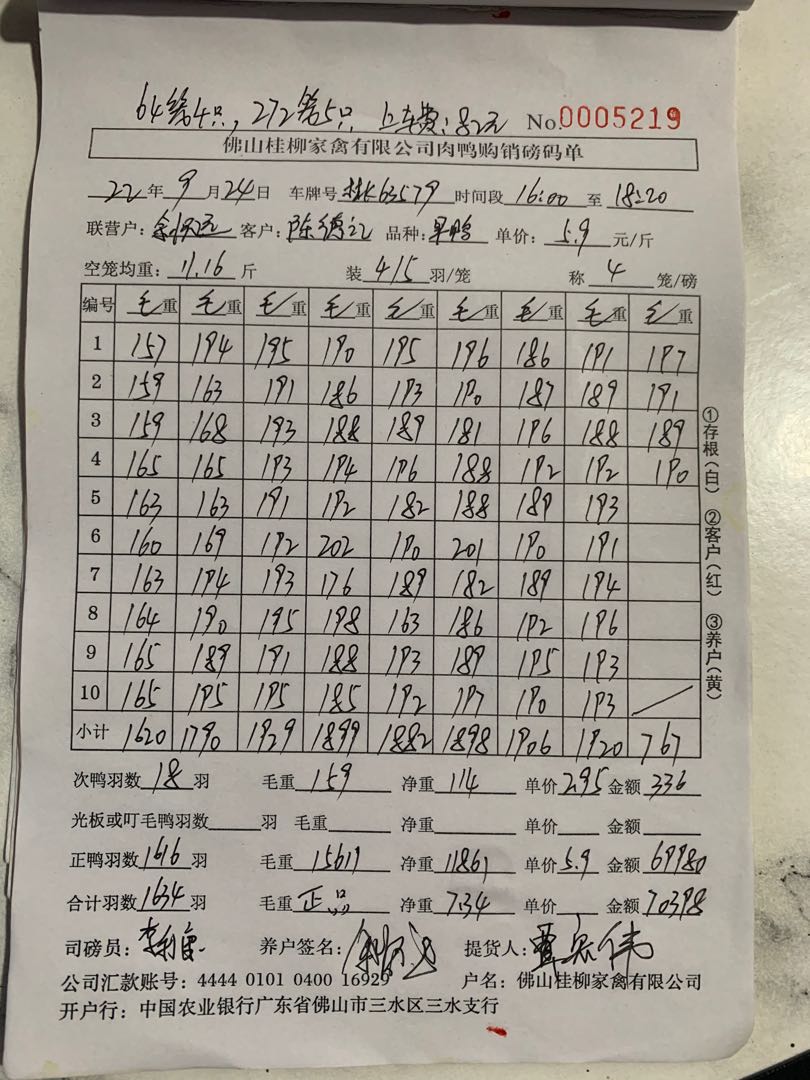 64笼4只,272笼5只 上车费:82元 No.0005219
佛山桂柳家禽有限公司肉鸭购销磅码单
22年9月24日 车牌号桂K63579 时间段16:00至18:20
联营户: 客户:陈德记 品种:果鸭 单价:5.9元/斤
空笼均重:11.16斤 装4/5羽/笼 称4笼/磅
编号 毛重 毛重 毛重 毛重 毛重 毛重 毛重 毛重 毛重
1 157 194 195 190 195 196 186 191 197
2 159 163 191 186 193 190 187 189 191
3 159 168 193 188 189 181 196 188 189
4 165 165 193 194 196 188 192 192 190
5 163 163 191 192 182 188 189 193
6 160 169 192 202 190 201 190 191
7 163 194 193 176 189 182 189 194
8 164 190 195 198 163 186 192 196
9 165 189 191 188 193 189 195 193
10 165 195 195 185 192 197 190 193
小计 1620 1790 1929 1899 1882 1898 1906 1920 767
次鸭羽数18羽 毛重159 净重114 单价2.95 金额336
光板或叮毛鸭羽数 羽 毛重 净重 单价 金额
正鸭羽数1616羽 毛重15611 净重11861 单价5.9 金额69980
合计羽数1634羽 毛重正品 净重7.34 单价 金额70398
司磅员: 养户签名: 提货人:
公司汇款账号: 4444 0101 0400 16929 户名: 佛山桂柳家禽有限公司
开户行: 中国农业银行广东省佛山市三水区三水支行
①存根(白) ②客户(红) ③养户(黄)